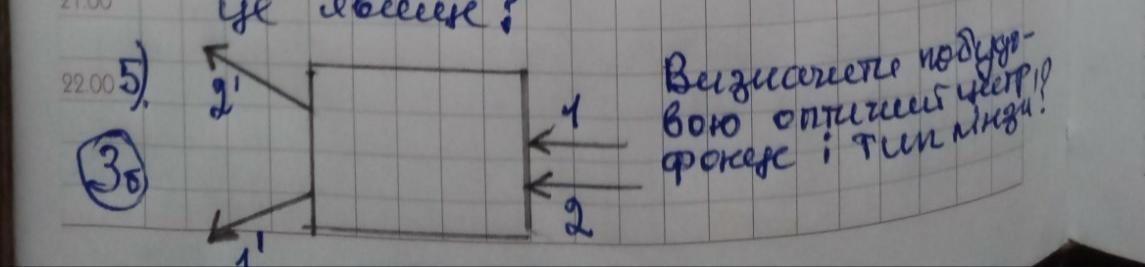 21.00
це явище?
22.00 5).
2'
1
Визначити побудо-
вою оптичний центр,
фокус і тип лінзи?
3б
2
1'